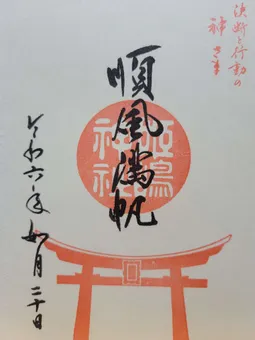 決断と行動の
神さま
順風満帆
神社
令和六年如月二十日